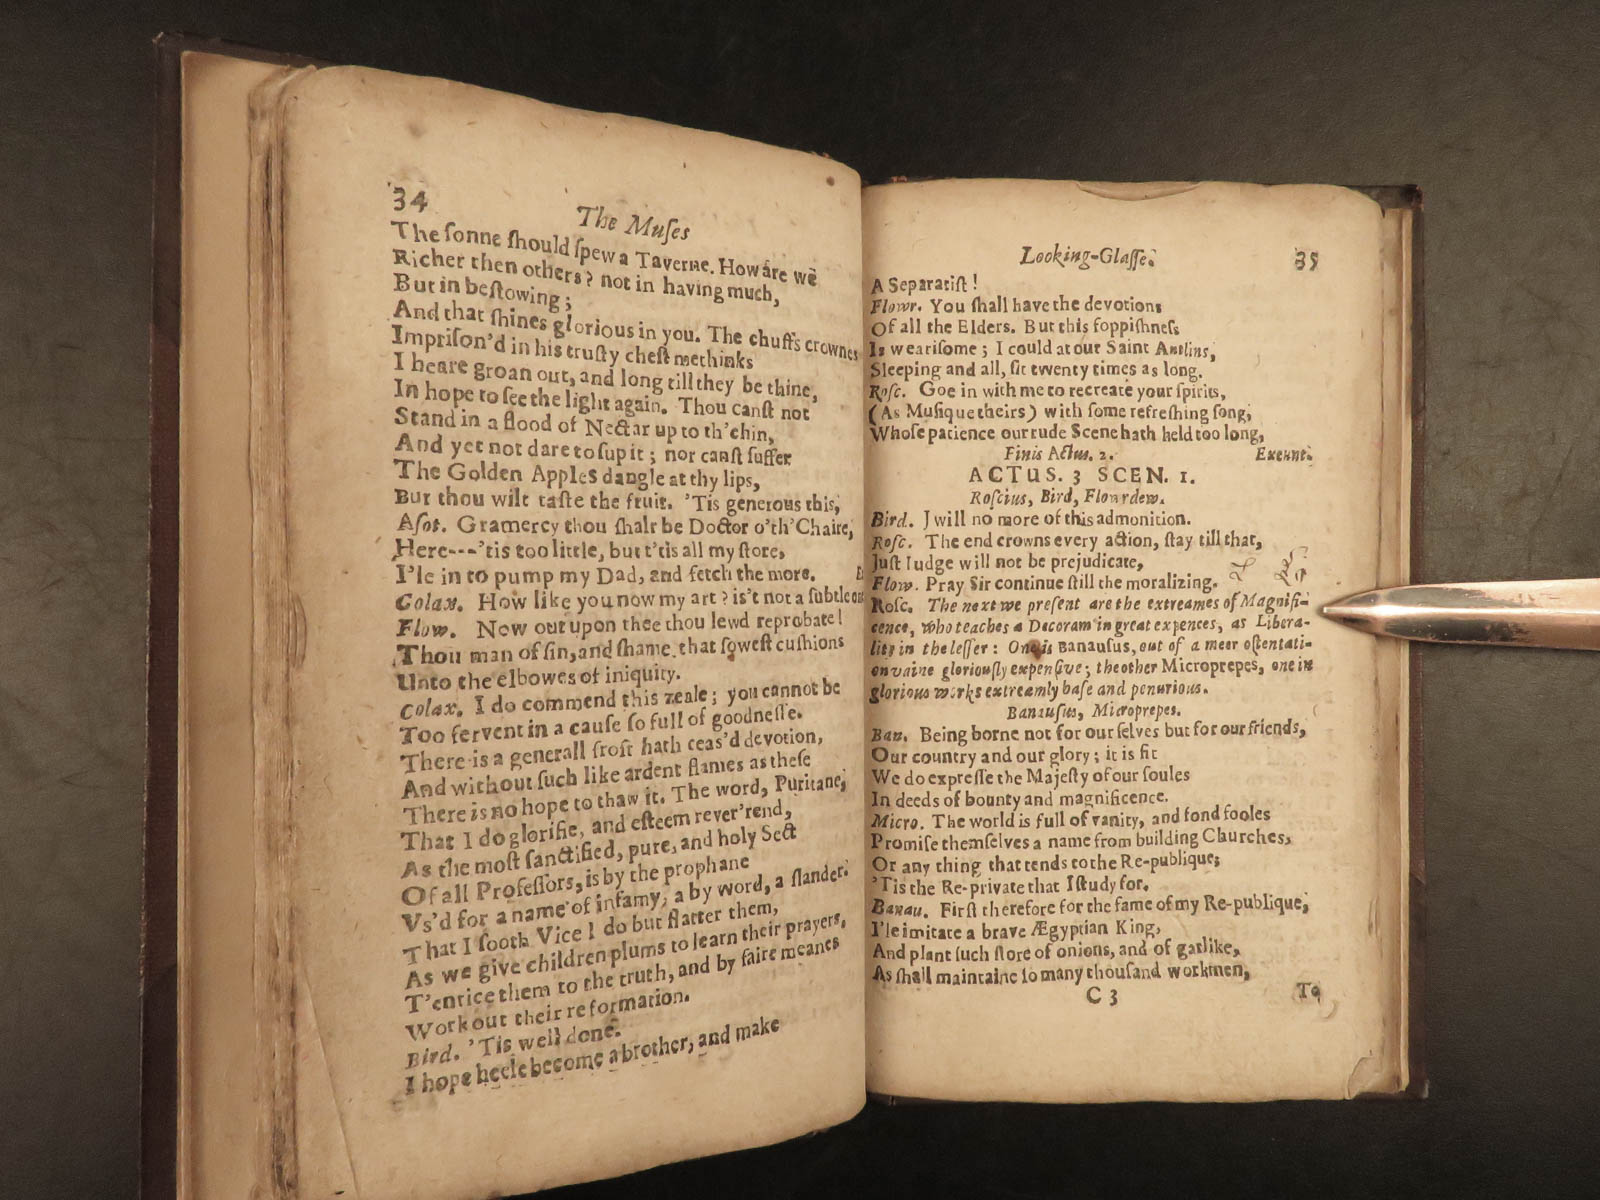 34
The Muſes
The ſonne ſhould ſpew a Taverne. How are we
Richer then others? not in having much,
But in beſtowing;
And that ſhines glorious in you. The chuffs crownes
Impriſon'd in his truſty cheſt methinks
I heare groan out, and long till they be thine,
In hope to ſee the light again. Thou canſt not
Stand in a flood of Nectar up to th'chin,
And yet not dare to ſup it; nor canſt ſuffer
The Golden Apples dangle at thy lips,
But thou wilt taſte the fruit. 'Tis generous this,
Aſot. Gramercy thou ſhalt be Doctor o'th'Chaire,
Here---'tis too little, but t'tis all my ſtore,
I'le in to pump my Dad, and fetch the more.
Colax. How like you now my art? is't not a ſubtle
Flow. Now out upon thee thou lewd reprobate!
Thou man of ſin, and ſhame that ſoweſt cuſhions
Unto the elbowes of iniquity.
Colax. I do commend this zeale; you cannot be
Too fervent in a cauſe ſo full of goodneſſe.
There is a generall froſt hath ceas'd devotion,
And without ſuch like ardent flames as theſe
There is no hope to thaw it. The word, Puritane,
That I do glorifie, and eſteem rever'rend,
As the moſt ſanctified, pure, and holy Sect
Of all Profeſſors, is by the prophane
Vs'd for a name of infamy, a by word, a ſlander.
That I ſooth Vice I do but flatter them,
As we give children plums to learn their prayers,
T'entice them to the truth, and by faire meanes
Work out their reformation.
Bird. 'Tis well done.
I hope heele become a brother, and make
Looking-Glaſſe.
35
A Separatiſt!
Flowr. You ſhall have the devotions
Of all the Elders. But this foppiſhneſs
Is weariſome; I could at our Saint Antlins,
Sleeping and all, ſit twenty times as long.
Roſc. Goe in with me to recreate your ſpirits,
(As Muſique theirs) with ſome refreſhing ſong,
Whoſe patience our rude Scene hath held too long,
Finis Actus. 2. Exeunt.
ACTUS. 3 SCEN. 1.
Roſcius, Bird, Flowrdew.
Bird. J will no more of this admonition.
Roſc. The end crowns every action, ſtay till that,
Juſt Iudge will not be prejudicate,
Flow. Pray Sir continue ſtill the moralizing.
Roſc. The next we preſent are the extreames of Magnifi-
cence, who teaches a Decoram in great expences, as Libera-
lity in the leſſer: One is Banauſus, out of a meer oſtentati-
on vaine gloriouſly expenſive; the other Microprepes, one in
glorious works extreamly baſe and penurious.
Banauſus, Microprepes.
Ban. Being borne not for our ſelves but for our friends,
Our country and our glory; it is fit
We do expreſſe the Majeſty of our ſoules
In deeds of bounty and magnificence.
Micro. The world is full of vanity, and fond fooles
Promiſe themſelves a name from building Churches,
Or any thing that tends to the Re-publique;
'Tis the Re-private that I ſtudy for.
Banau. Firſt therefore for the fame of my Re-publique,
I'le imitate a brave Ægyptian King,
And plant ſuch ſtore of onions, and of garlike,
As ſhall maintaine ſo many thouſand workmen,
C 3 To